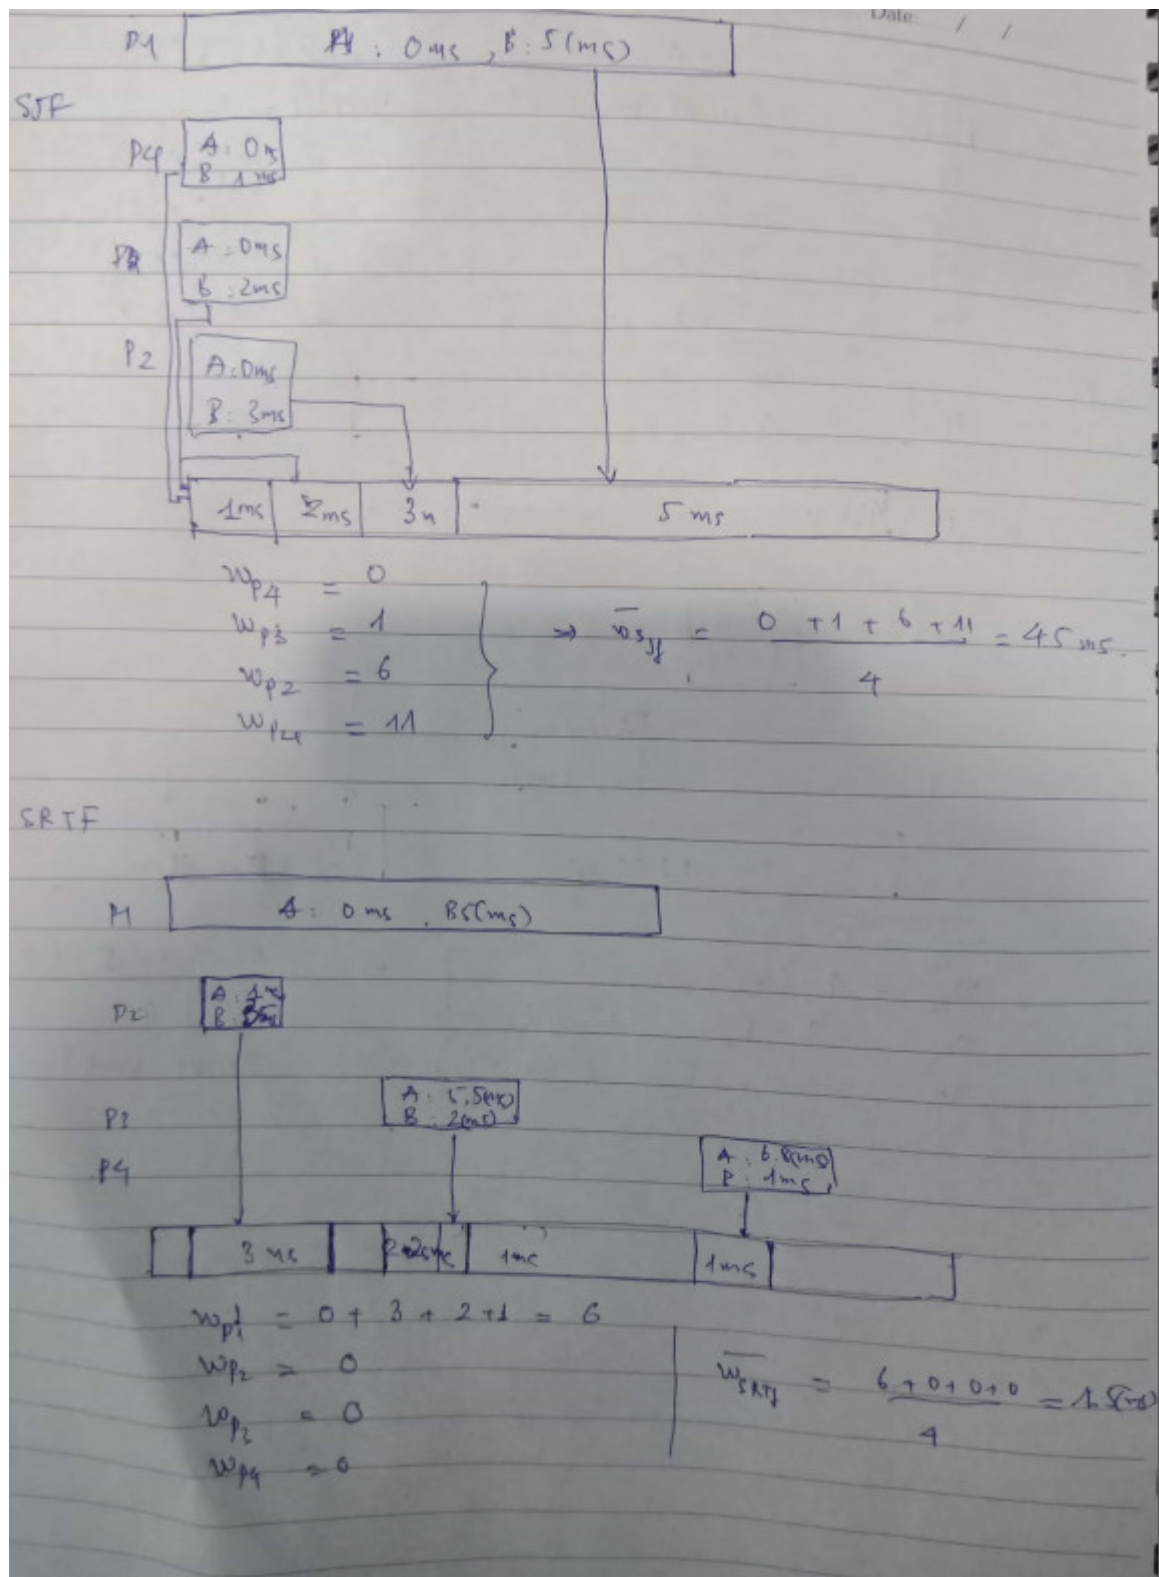 Date: / /
P1 A : 0ms, B : 5(ms)
SJF
P4 A : 0ms
B 1ms
A : 0ms
B : 2ms
P2 A : 0ms
B : 3ms
1ms 2ms 3m 5 ms
Wp4 = 0
Wp3 = 1
Wp2 = 6
Wp4 = 11
=> = 0 + 1 + 6 + 11 = 45 ms.
4
SRTF
P1 A : 0 ms . B5(ms)
P2 A : 1
B :
P3 A : 5,5(ms)
B : 2(ms)
P4 A : 6.5(ms)
P : 1ms
3 ms 1ms 1ms
Wp1 = 0 + 3 + 2 + 1 = 6
Wp2 = 0
Wp3 = 0
Wp4 = 0
WSRTf = 6 + 0 + 0 + 0 = 1.5(ms)
4